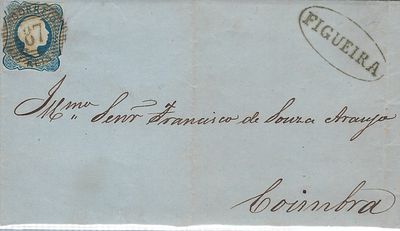 CORREIO
87
FIGUEIRA
Illmo Senr Francisco de Souza Araujo
Coimbra